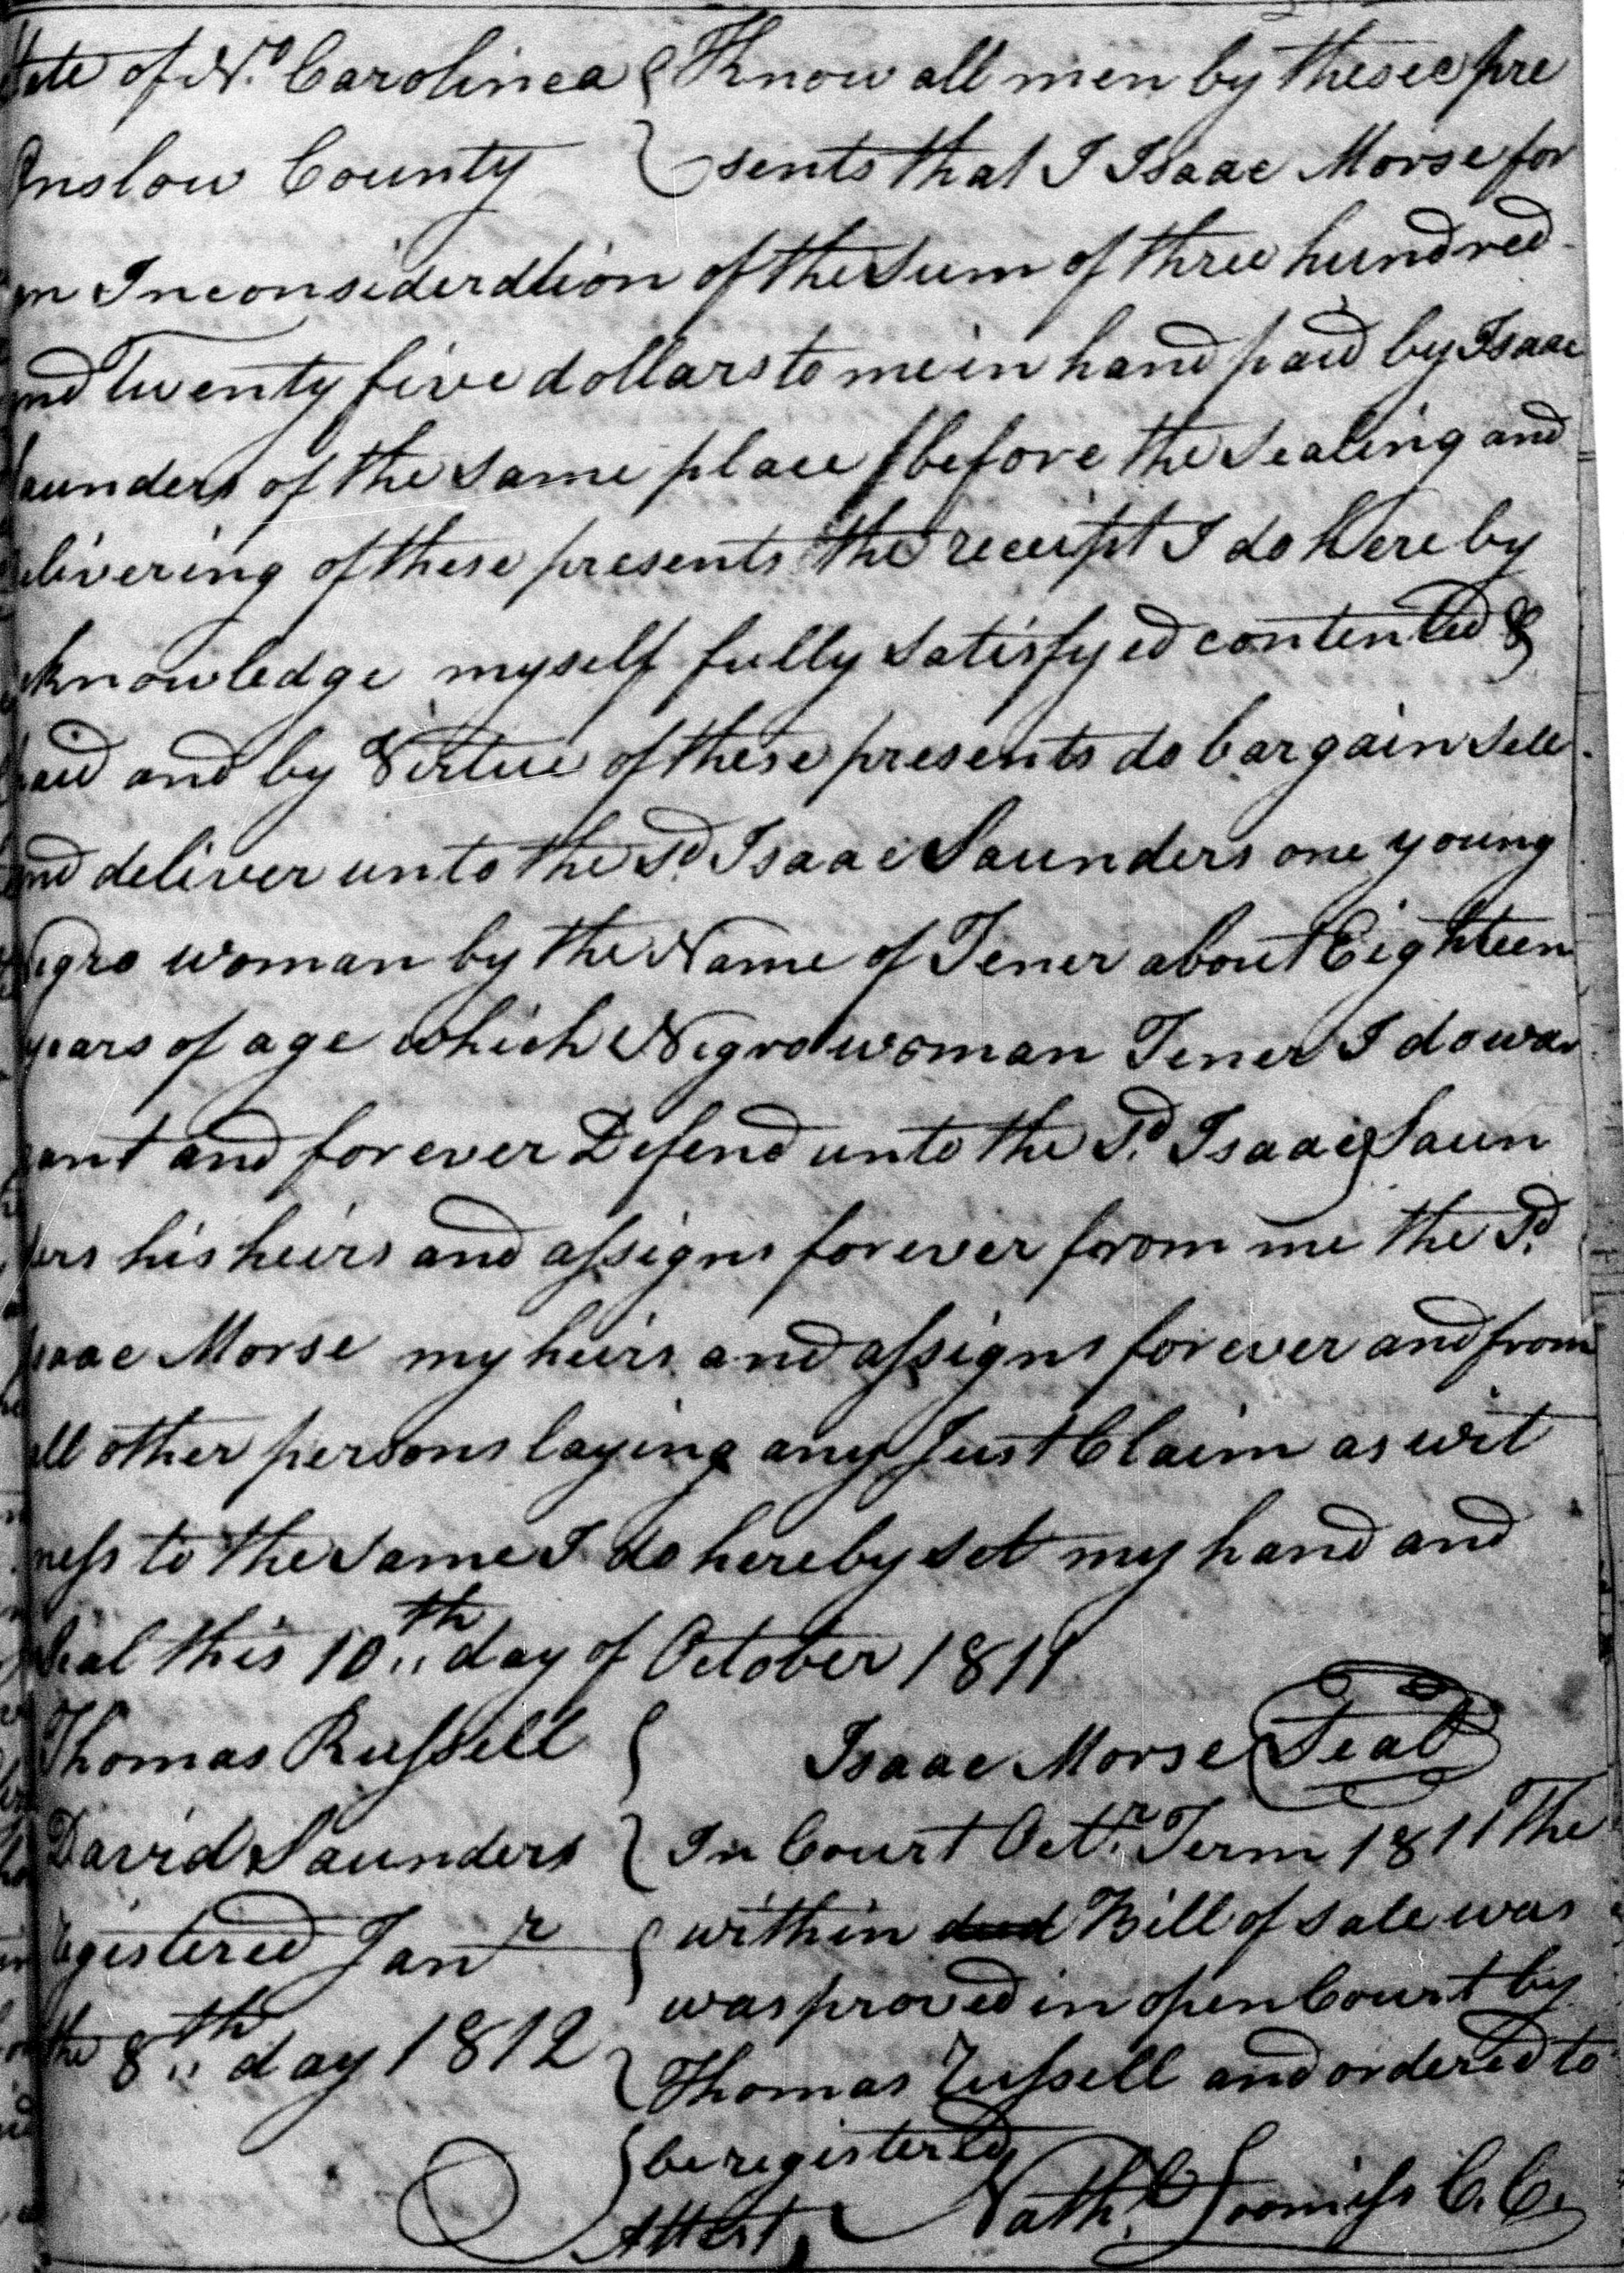 State of No. Carolinea { Know all men by these pre
Onslow County } sents that I Isaac Morse for
in Inconsiderdtion of the sum of three hundred
and Twenty five dollars to me in hand paid by Isaac
Saunders of the same place before the sealing and
delivering of these presents the receipt I do Here by
acknowledge myself fully satisfyed contented &
paid and by Virtue of these presents do bargain sell
and deliver unto the Sd. Isaac Saunders one young
Negro woman by the Name of Tener about Eighteen
years of age which Negro woman Tener I do war
rant and forever Defend unto the Sd. Isaac Saun
ders his heirs and assigns forever from me the Sd.
Isaac Morse my heirs and assigns forever and from
all other persons laying any Just Claim as wit
ness to the same I do hereby set my hand and
Seal this 10th day of October 1811
Thomas Russell { Isaac Morse Seal
David Saunders } In Court Octr. Term 1811 The
Registered Janr { within deed Bill of sale was
was proved in open Court by
the 8th day 1812 } Thomas Russell and ordered to
be registered
Attest, Nath. Loomiss C. C.